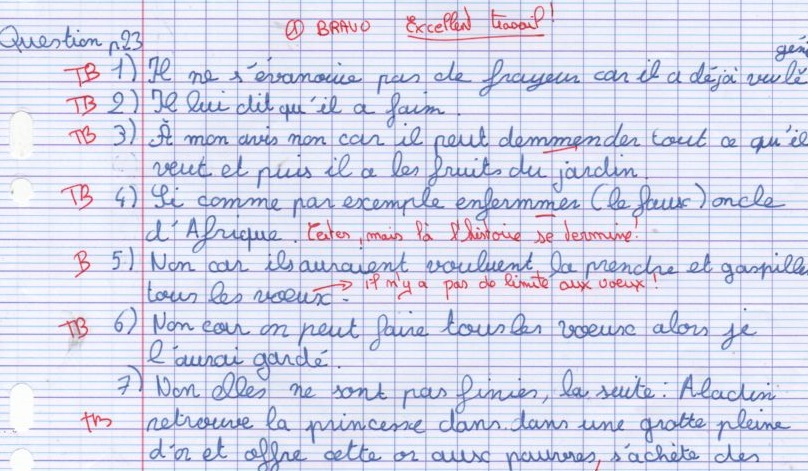 BRAVO Excellent travail!
Question p23
géni
TB 1) Il ne s'évanouie pas de frayeur car il a déjà vu lé
TB 2) Il lui dit qu'il a faim.
TB 3) À mon avis non car il peut demmender tout ce qu'il
veut et puis il a les fruits du jardin.
TB 4) Si comme par exemple enfermmer (le faux) oncle
d'Afrique. Certes, mais là l'histoire se termine!
B 5) Non car ils auraient vouluent la prendre et gaspille
tous les voeux. → il n'y a pas de limite aux voeux!
TB 6) Non car on peut faire tous les voeux alors je
l'aurai gardé.
7) Non elles ne sont pas finies, la suite: Aladin
TB retrouve la princesse dans dans une grotte pleine
d'or et offre cette or aux pauvres, s'achète des